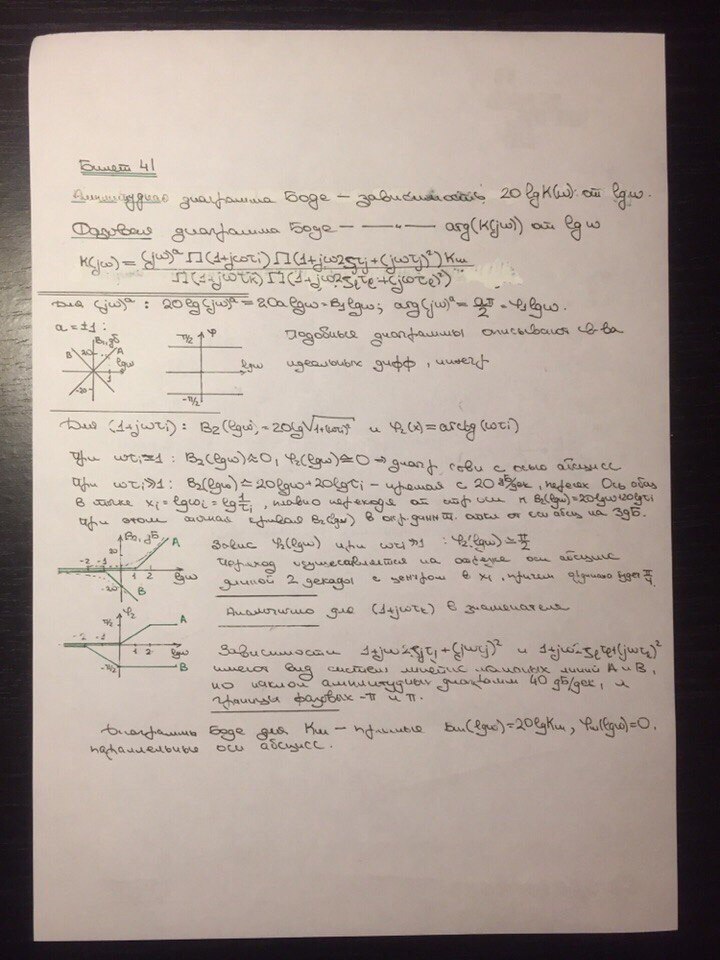 Билет 41
Амплитудная диаграмма Боде – зависимость 20 lg K(ω) от lg ω.
Фазовая диаграмма Боде – —〃— arg(K(jω)) от lg ω
K(jω) = (jω)ᵃ Π(1+jωτi) Π(1+jω2ζjτj+(jωτj)²) Km
Π(1+jωτk) Π(1+jω2ζℓτℓ+(jωτℓ)²)
Для (jω)ᵃ : 20lg(jω)ᵃ = 20a lgω = B₁lgω; arg(jω)ᵃ = aπ/2 = φ₁lgω.
a = ±1 :
B₁, дБ
B 20 A
lgω
1
-20
π/2 φ
lgω
-π/2
Подобные диаграммы описывают св-ва
идеальных дифф, интегр
Для (1+jωτi) : B₂(lgω) = 20lg√1+(ωτi)² и φ₂(x) = arctg(ωτi)
При ωτi ≪ 1 : B₂(lgω) ≈ 0, φ₂(lgω) ≅ 0 ⇒ диагр совп с осью абсцисс
При ωτi ≫ 1 : B₂(lgω) ≃ 20lgω+20lgτi – прямая с 20 дБ/дек, перес ось абсц
в точке xi = lgωi = lg 1/τi, плавно переходя от к B₂(lgω)=20lgω+20lgτi
При этом точная кривая B₂(lgω) в откл от оси абсц на 3дБ.
B₂, дБ
A
20
-2 -1 1 2 lgω
-20
B
Завис φ₂(lgω) при ωτi ≫ 1 : φ₂(lgω) ≃ π/2
Переход осуществляется на отрезке оси абсцисс
длиной 2 декады с центром в xi, причем будет π/4
Аналогично для (1+jωτk) в знаменателе
φ₂
π/2 A
-2 -1 1 2 lgω
-π/2 B
Зависимости 1+jω2ζjτj+(jωτj)² и 1+jω2ζℓτℓ+(jωτℓ)²
имеют вид систем ломаных линий A и B,
но наклон амплитудных диаграмм 40 дБ/дек, а
границы фазовых -π и π.
Диаграммы Боде для Km – прямые Bm(lgω)=20lgKm, φm(lgω)=0.
параллельные оси абсцисс.